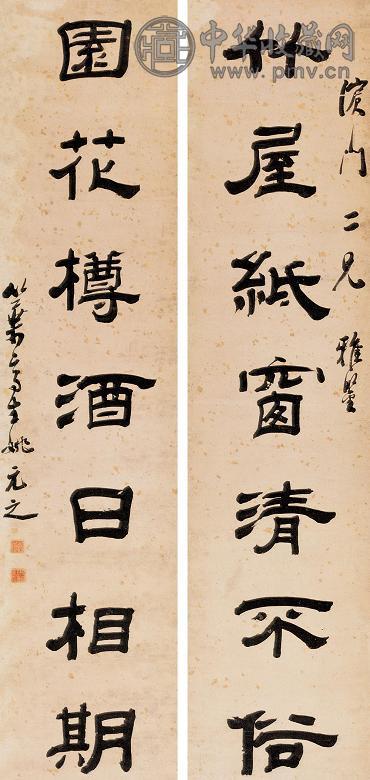 濱門二兄雅鑒
艸屋紙窗清不俗
園花樽酒日相期
姚元之
中华收藏网
www.pmv.cn